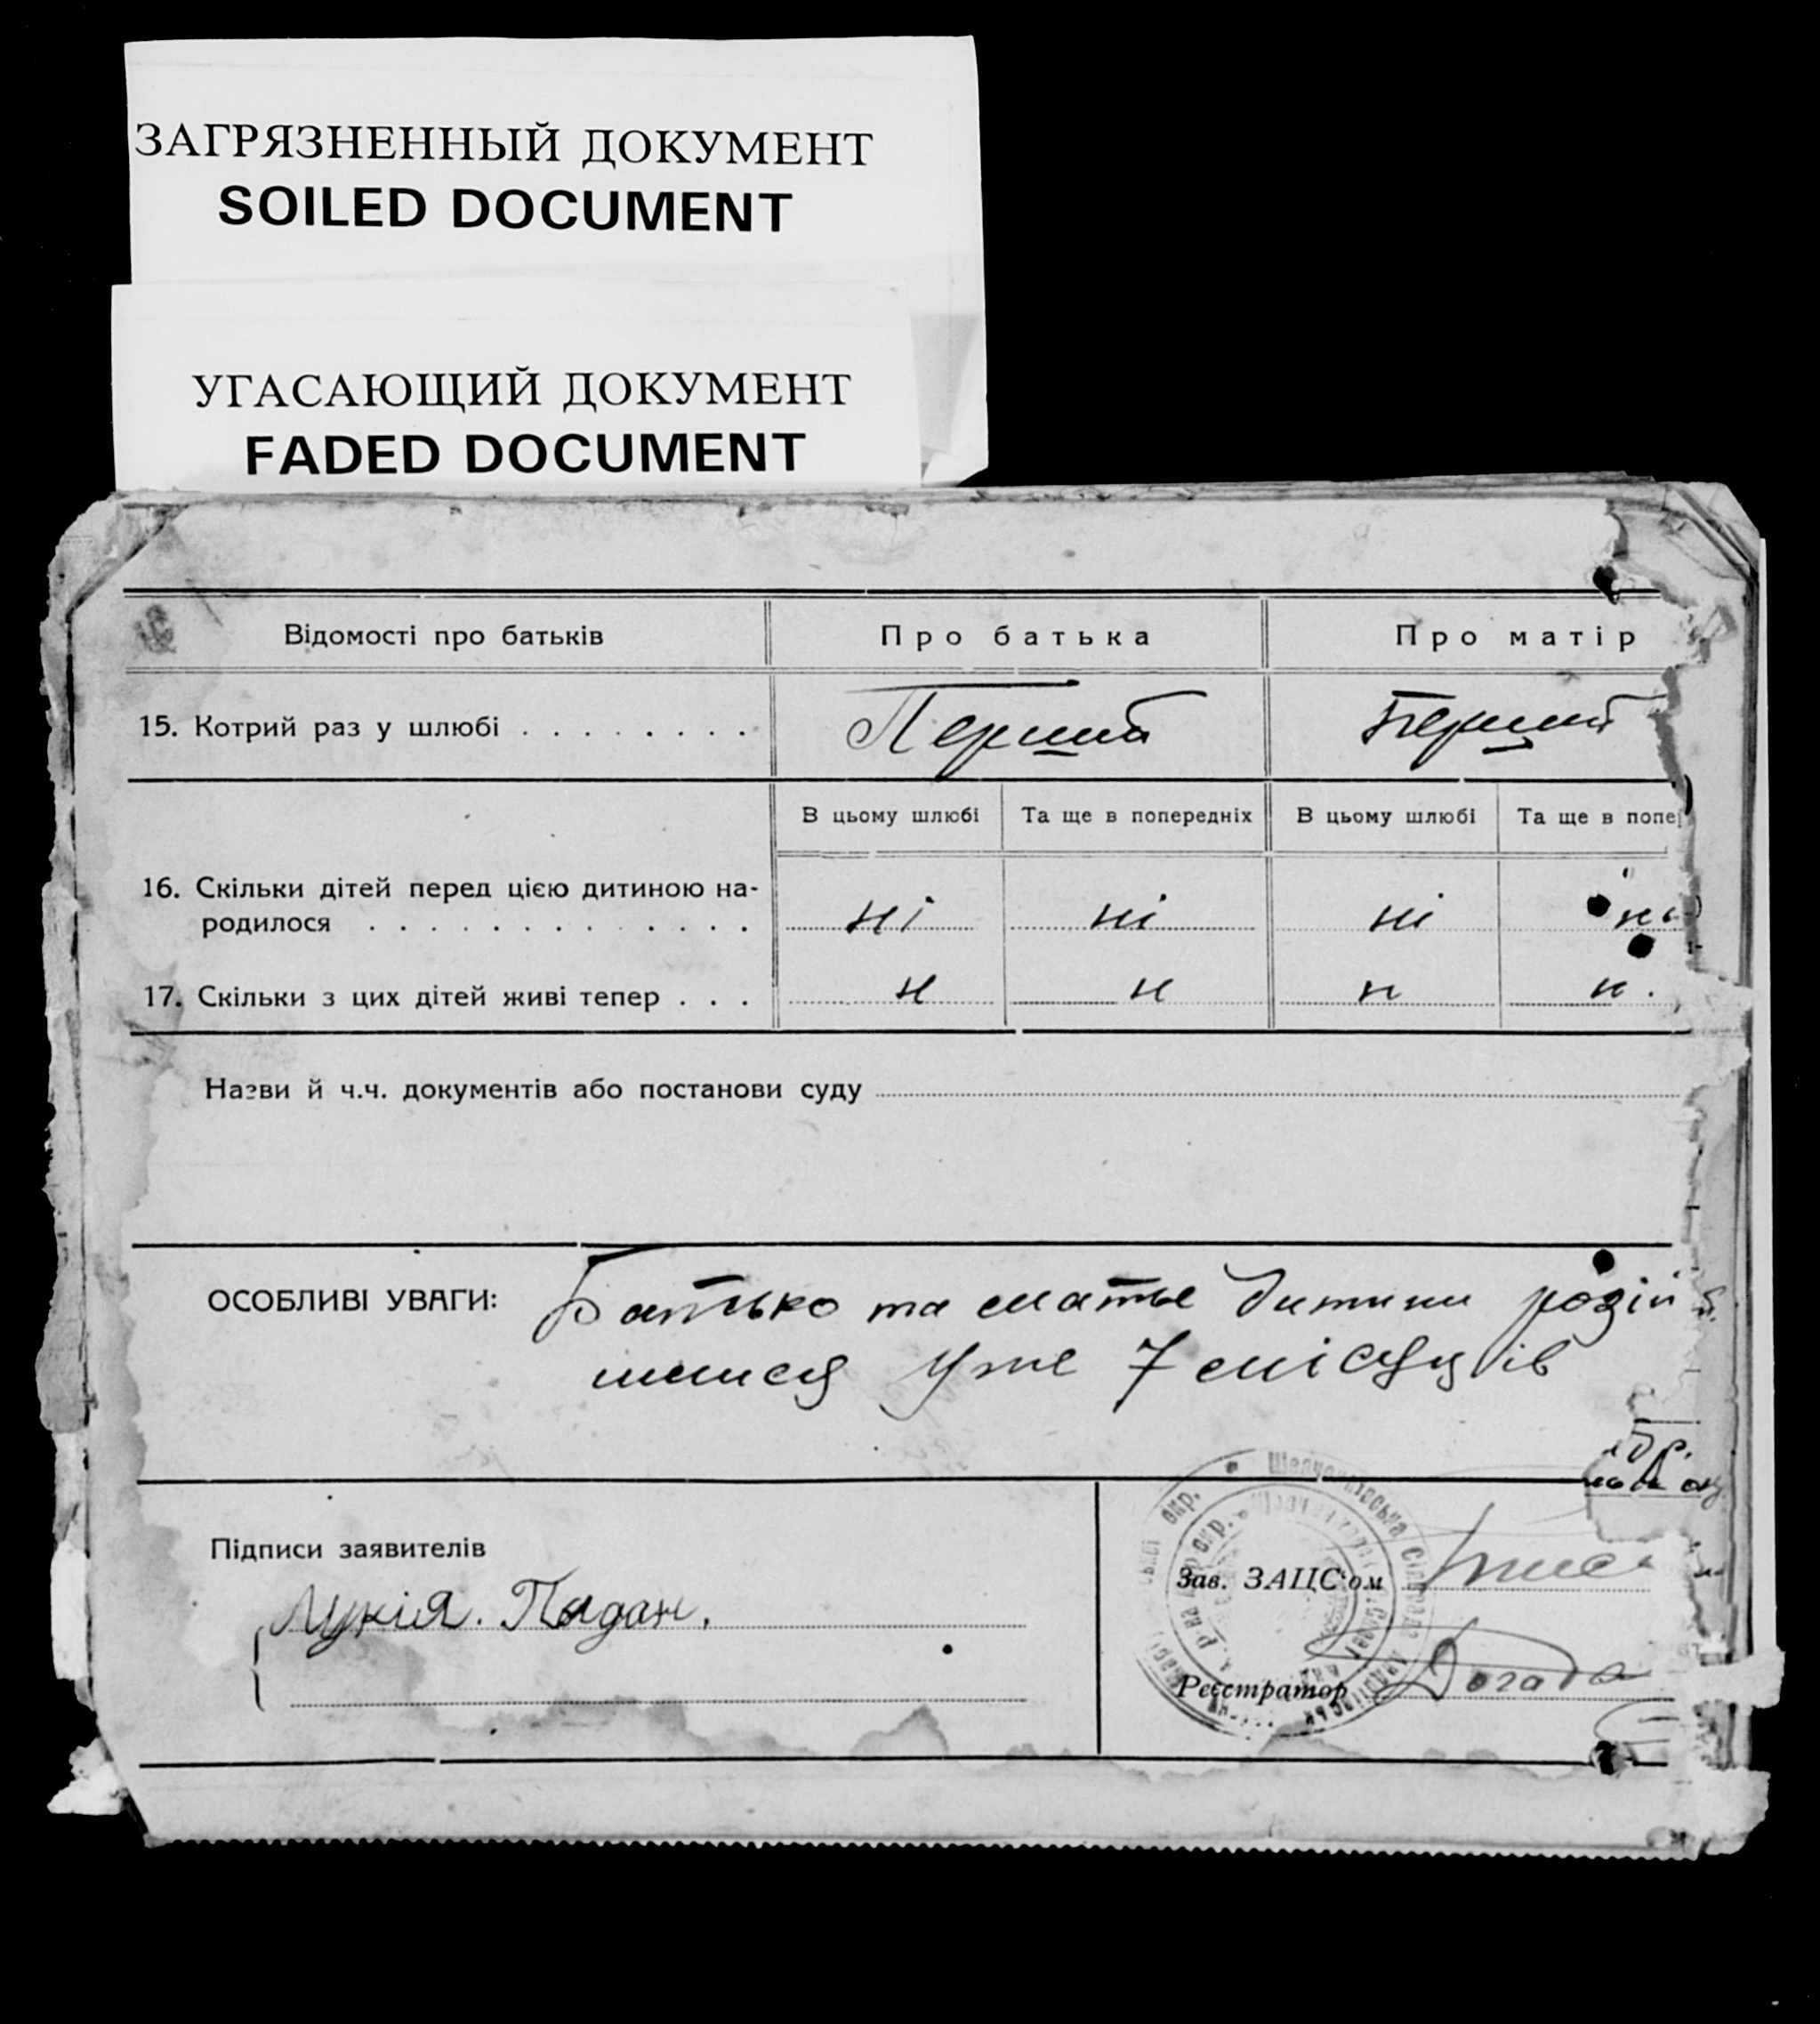 ЗАГРЯЗНЕННЫЙ ДОКУМЕНТ
SOILED DOCUMENT
УГАСАЮЩИЙ ДОКУМЕНТ
FADED DOCUMENT
Відомості про батьків Про батька Про матір
15. Котрий раз у шлюбі . . . . . . . . Перший Перший
В цьому шлюбі Та ще в попередніх В цьому шлюбі Та ще в попе
16. Скільки дітей перед цією дитиною на-
родилося . . . . . . . . . . . . . ні ні ні ні
17. Скільки з цих дітей живі тепер . . . н н н н.
Назви й ч.ч. документів або постанови суду
ОСОБЛИВІ УВАГИ: Батько та мате дитини розій
шлися уже 7 місяців
Підписи заявителів
Зав. ЗАЦС'ом
Лукія.
Реєстратор Догада